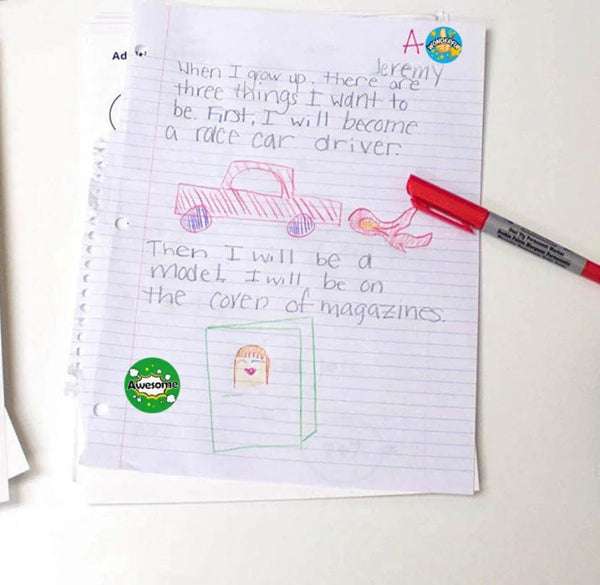 A
WONDERFUL
Jeremy
Ad
When I grow up, there are
three things I want to
be. First, I will become
a race car driver.
Then I will be a
model. I will be on
the cover of magazines.
Awesome